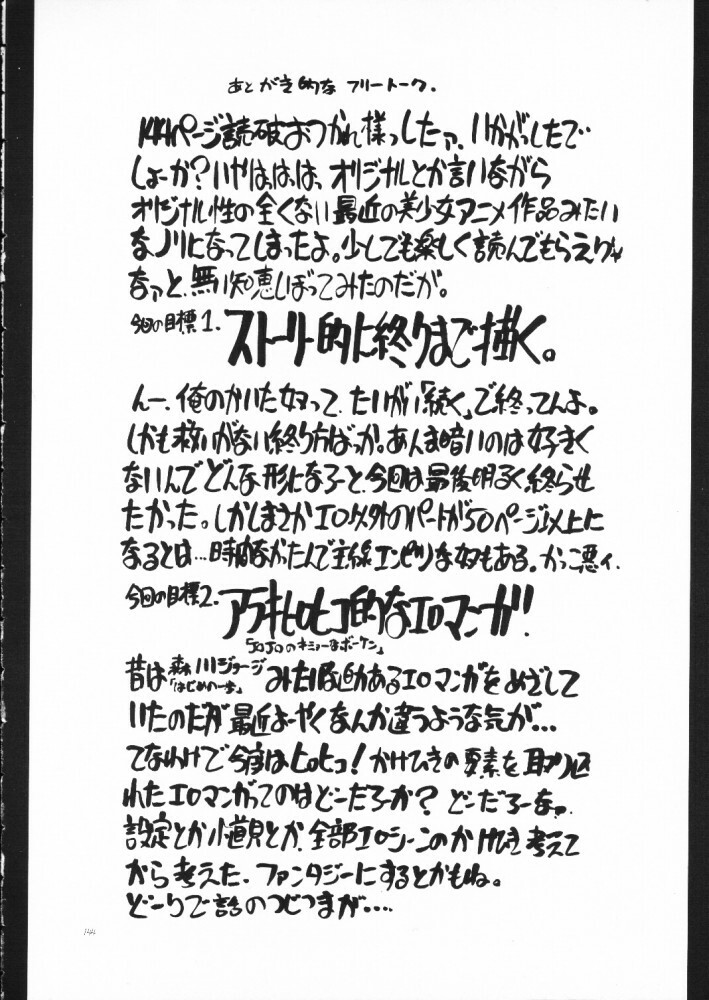 あとがき的な フリートーク.
144ページ読破おつかれ様っしたァ、いかがっしたで
しょーか?いやはっはっはっ、オリジナルとか言いながら
オリジナル性の全くない最近の美少女アニメ作品みたい
なノリになってしまったよ。少しでも楽しく読んでもらえりゃ
なァと、無い知恵しぼってみたのだが。
今回の目標1.
ストーリー的に終りまで描く。
んー、俺のかいた奴って、たいがい「続く」で終ってんよ。
しかも救いがない終り方ばっか。あんま暗いのは好きく
ないんでどんな形になろーと、今回は最後明るく終らせ
たかった。しかしまさかエロ以外のパートが50ページ以上に
なるとは…時間なかったんで主線エンピツな奴もある。かっこ悪ィ.
今回の目標2.
アラキヒロヒコ的なエロマンガ!
「JOJOのキミョーなボーケン」
昔は森川ジョージみたいな迫力あるエロマンガをめざして
「はじめの一歩」
いたのだが最近よーやくなんか違うような気が…
てなわけで今度はヒロヒコ!かけひきの要素を取り込
れたエロマンガってのはどーだろーか?どーだろーなァ.
設定とか小道具とか、全部エロシーンのかけひき考えて
から考えた、ファンタジーにするとかもね。
どーりで話のつじつまが….
144